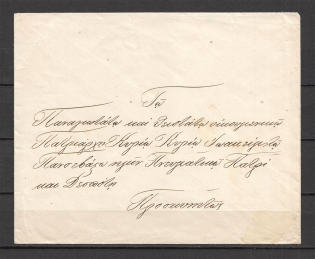 Τῷ
Παναγιωτάτῳ καὶ Θειοτάτῳ οἰκουμενικῷ
Πατριάρχῃ Κυρίῳ Κυρίῳ Ἰωακεὶμ τῷ
Πανσεβάστῳ ἡμῶν Πνευματικῷ Πατρὶ
καὶ Δεσπότῃ
Προσκυνητῶς